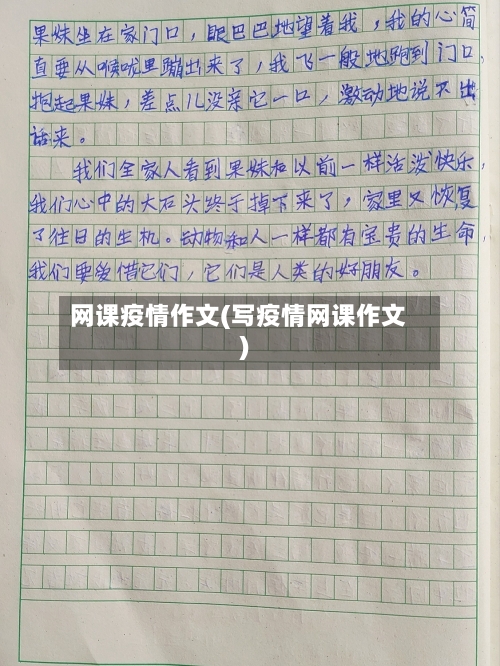 果妹坐在家门口，眼巴巴地望着我，我的心简
直要从喉咙里蹦出来了，我飞一般地跑到门口，
抱起果妹，差点儿没亲它一口，激动地说不出
话来。
我们全家人看到果妹和以前一样活泼快乐，
我们心中的大石头终于掉下来了，家里又恢复
了往日的生机。动物和人一样都有宝贵的生命，
我们要爱惜它们，它们是人类的好朋友。
网课疫情作文(写疫情网课作文
)